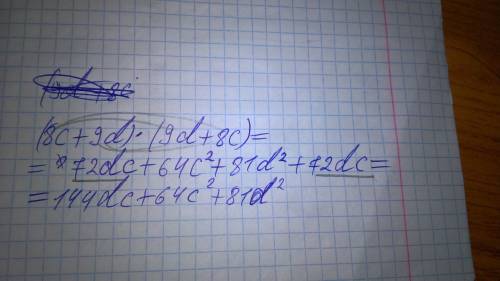 (8c+9d)·(9d+8c)=
=72dc+64c²+81d²+72dc=
=144dc+64c²+81d²